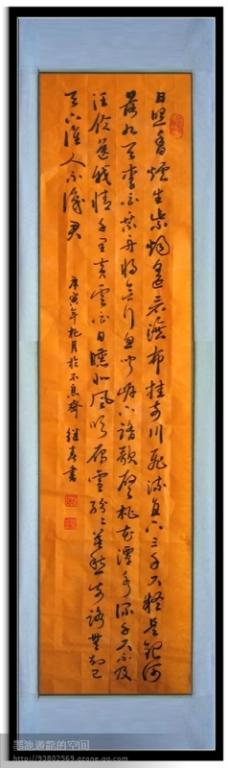 日照香炉生紫烟遥看瀑布挂前川飞流直下三千尺疑是银河
落九天李白乘舟将欲行忽闻岸上踏歌声桃花潭水深千尺不及
汪伦送我情千里黄云白日曛北风吹雁雪纷纷莫愁前路无知己
天下谁人不识君
庚寅年 月於不息斋 继春书
的空间
http://93802569.qzone.qq.com